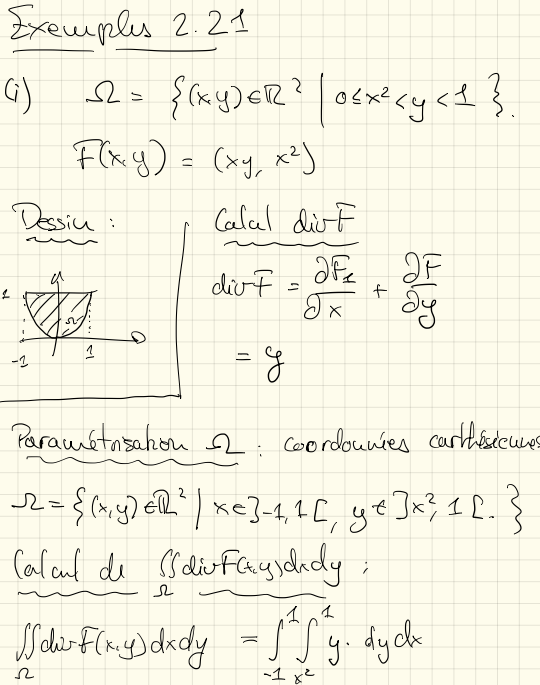 Exemples 2.21
(i) Ω = {(x,y)∈ℝ² | 0≤x²<y<1}.
F(x,y) = (xy, x²)
Dessin :
y
1
Ω
-1 1
Calcul divF
divF = ∂F₁/∂x + ∂F/∂y
= y
Paramétrisation Ω : coordonnées carthésiennes
Ω = {(x,y)∈ℝ² | x∈]-1,1[, y∈]x²,1[.}
Calcul de ∬_Ω divF(x,y)dxdy :
∬_Ω divF(x,y)dxdy = ∫_{-1}^{1}∫_{x²}^{1} y. dydx